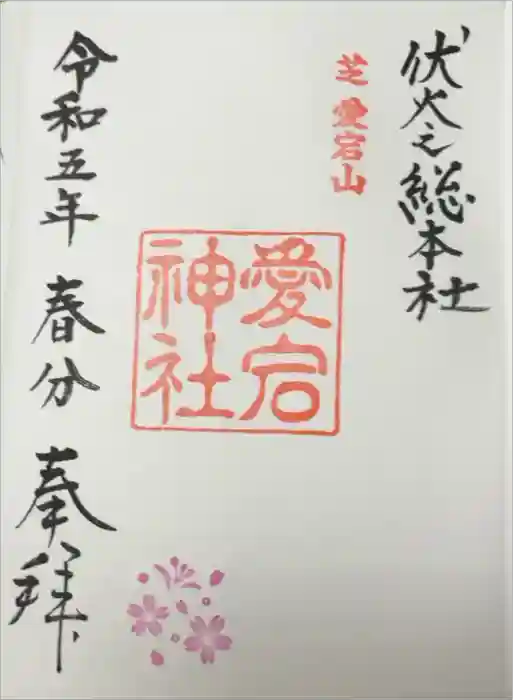 伏火之総本社
芝愛宕山
愛宕
神社
令和五年 春分 奉拝